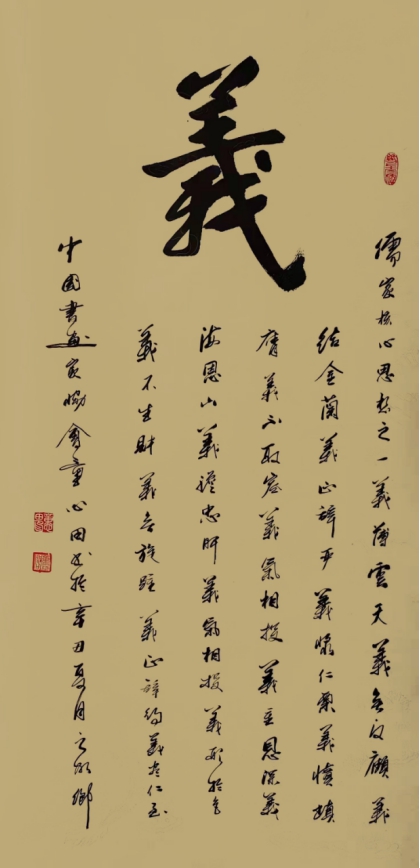 義
儒家核心思想之一義薄雲天義無反顧義
結金蘭義正辭嚴義漿仁粟義憤填
膺義不取容義氣相投義重恩深義
海恩山義膽忠肝義氣相投義形於色
義不生財義無旋踵義正辭約義盡仁至
中國書畫家協會童心田書於辛丑夏月之